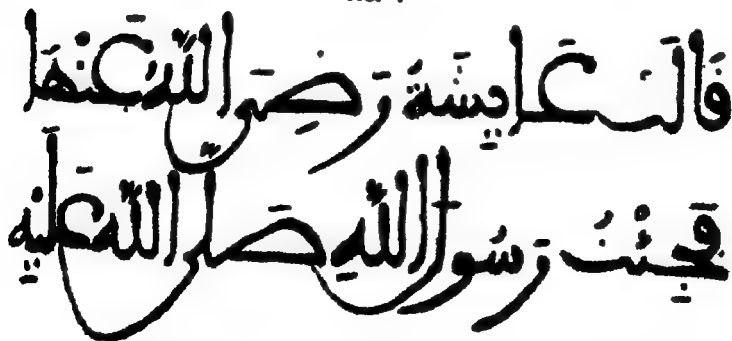 قَالَت عَايِشَةُ رَضِىَ اللَّهُ عَنْهَا
فَجِئْتُ رَسُولَ اللَّهِ صَلَّى اللَّهُ عَلَيْهِ